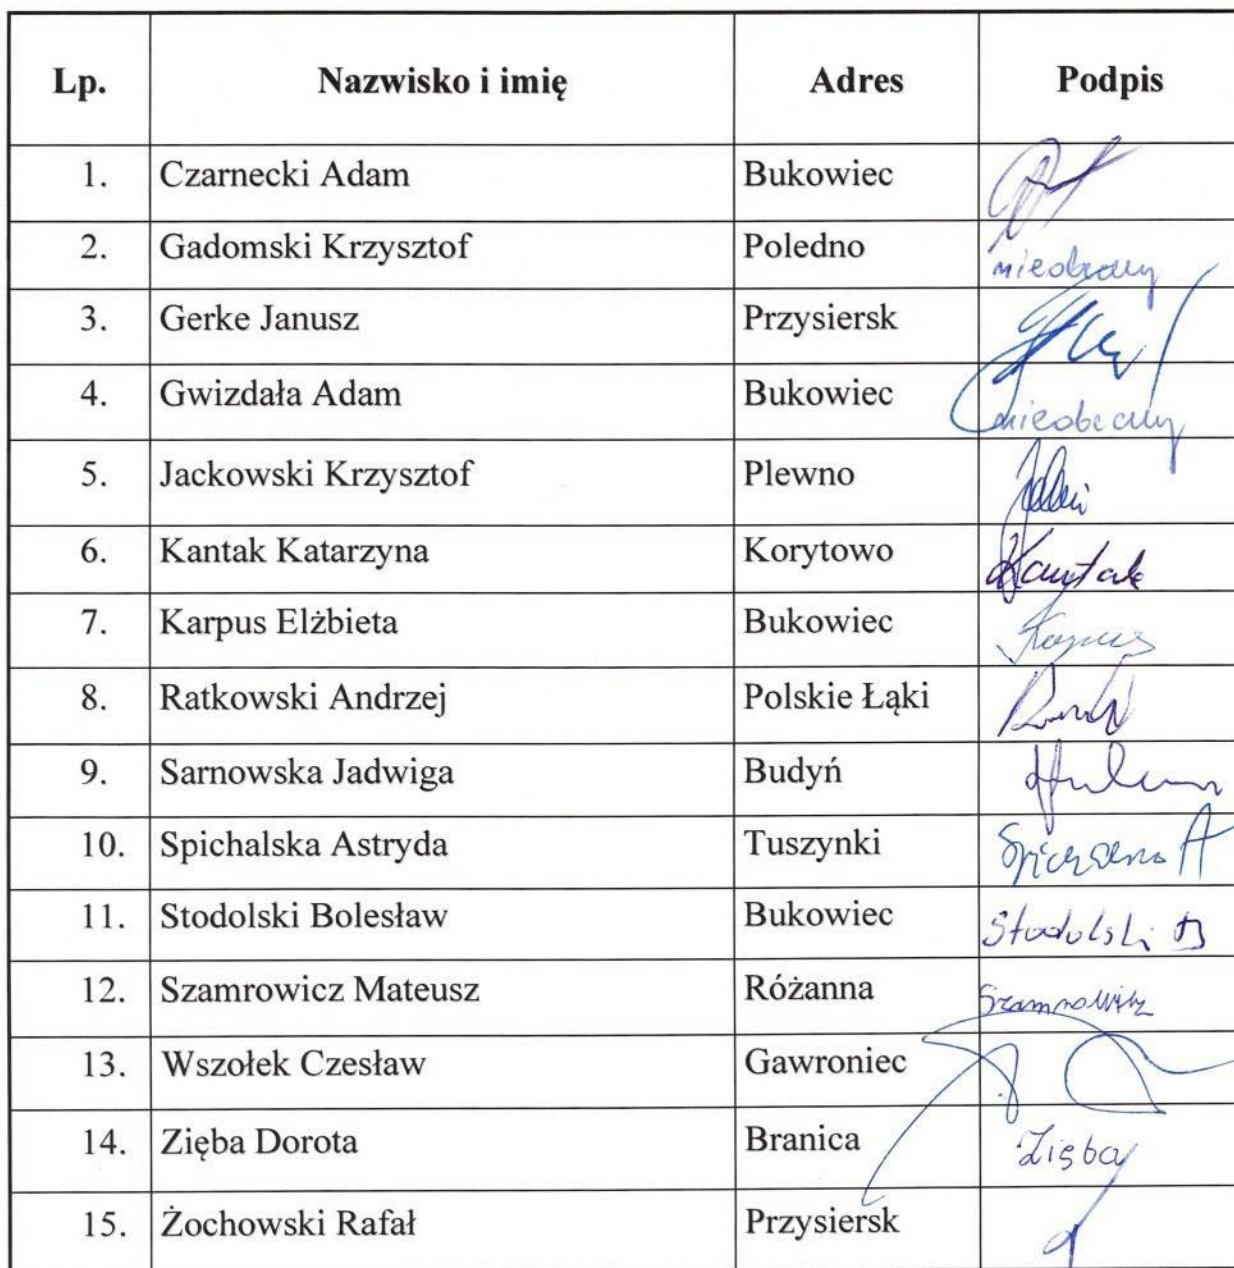 Lp. Nazwisko i imię Adres Podpis
1. Czarnecki Adam Bukowiec
2. Gadomski Krzysztof Poledno nieobecny
3. Gerke Janusz Przysiersk
4. Gwizdała Adam Bukowiec nieobecny
5. Jackowski Krzysztof Plewno
6. Kantak Katarzyna Korytowo Kantak
7. Karpus Elżbieta Bukowiec Karpus
8. Ratkowski Andrzej Polskie Łąki
9. Sarnowska Jadwiga Budyń
10. Spichalska Astryda Tuszynki
11. Stodolski Bolesław Bukowiec Stodolski B
12. Szamrowicz Mateusz Różanna
13. Wszołek Czesław Gawroniec
14. Zięba Dorota Branica Zięba
15. Żochowski Rafał Przysiersk